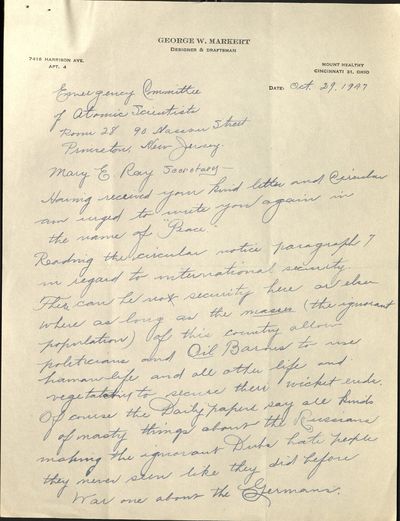 GEORGE W. MARKERT
DESIGNER & DRAFTSMAN
7418 HARRISON AVE.
APT. 4
MOUNT HEALTHY
CINCINNATI 31, OHIO
DATE: Oct. 29, 1947
Emergency Committee
of Atomic Scientists
Room 28 90 Nassau Street
Princeton, New Jersey.
Mary E. Ray Secretary —
Having received your kind letter and circular
am urged to write you again in
the name of "Peace".
Reading the circular notice paragraph 7
in regard to international security.
There can be not security here or else
where as long as the masses (the ignorant
population) of this country allow
politicians and Oil Barons to use
human life and all other life and
vegetation to secure their wicket ends.
Of course the Daily papers say all kinds
of nasty things about the Russians
making the ignorant Dubs hate people
they never seen like they did before
War one about the Germans.